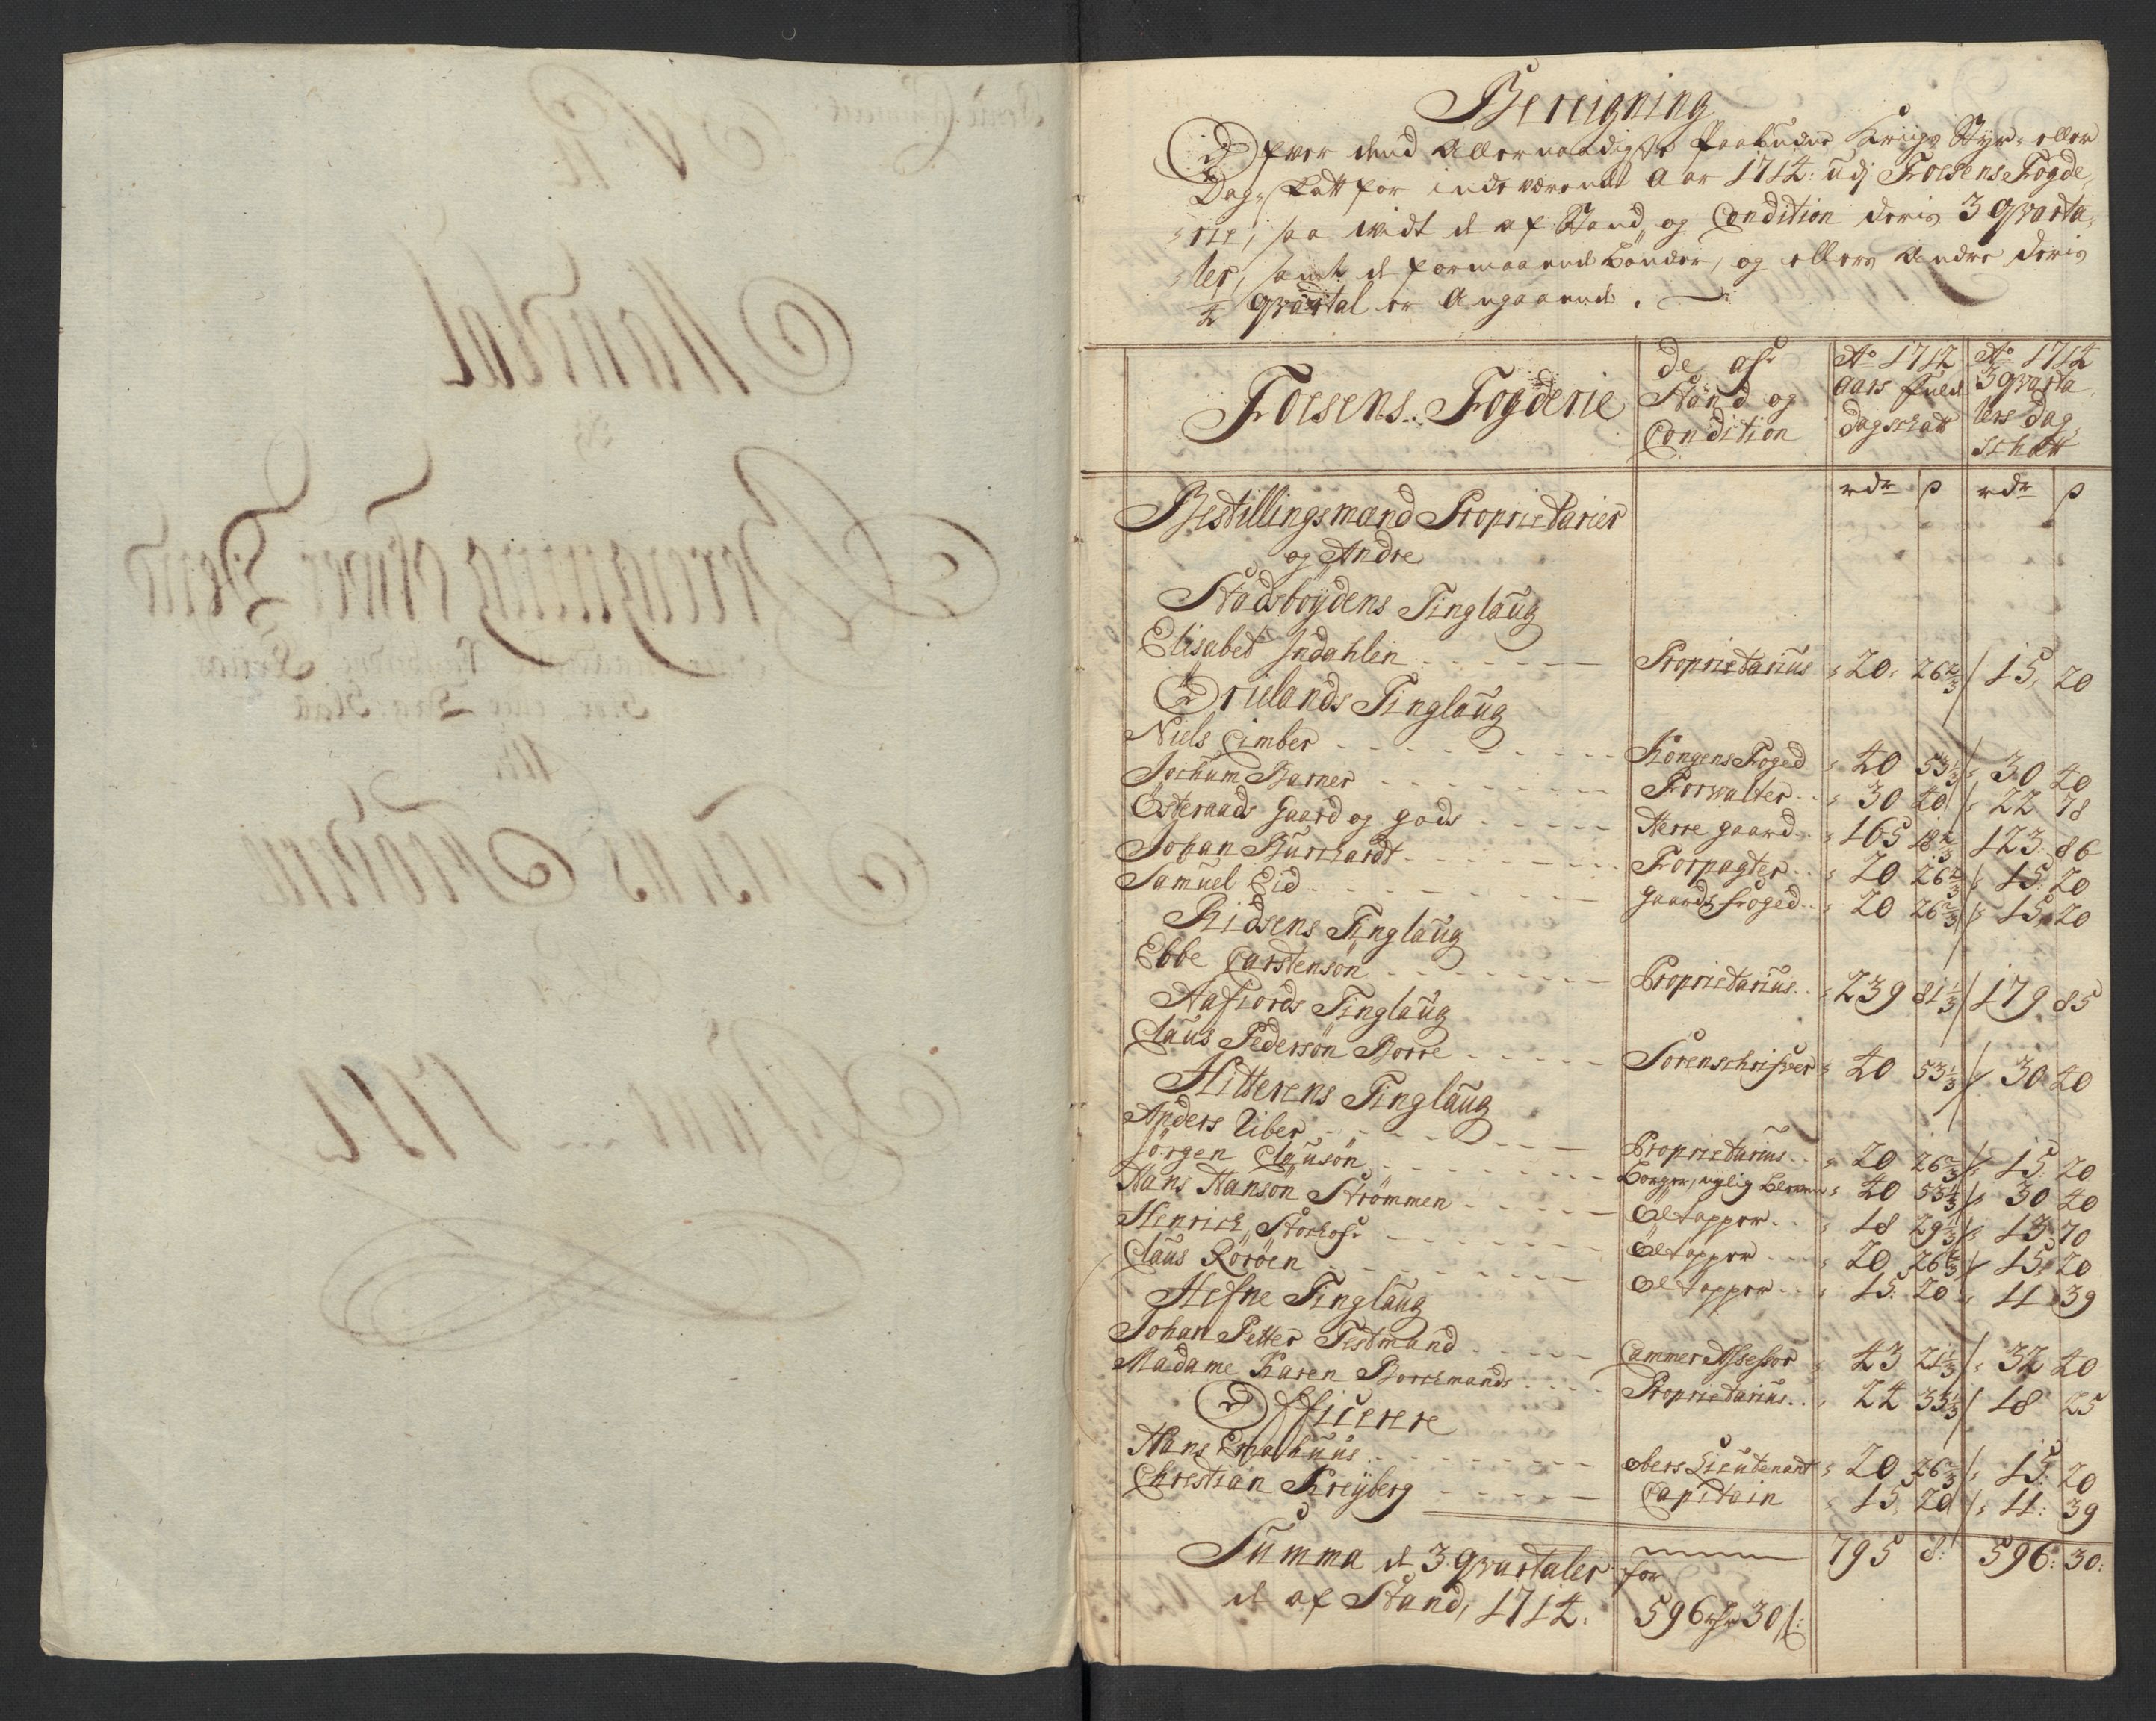 Bereigning
Ofver dend Allernaadigste Paabudne Krigs Styr- eller
Dag-skatt for indeværende Aar 1714: udj Foesens Fogde-
rie, saa widt de af Stand og Condition deris 3 Qvarta-
ler, samt de formaaende bönder, og ellers Andre deris
Qvartal er Angaaende.
Foesens Fogderie
de afr Stand og Condition
Ao 1712 aars fulde dagschatt
Ao 1714 3 qvartalers Dagschatt
rdr ß rdr ß
Bestillingsmænd Proprietarier
og Andre
Stadsboÿdens Tinglaug
Elisabet Indahlin Proprietarius 20 26 2/3 15 20
Ørelands Tinglaug
Niels Cimber KongensFoged 40 53 1/3 30 40
Jochum Barner Forwalter 30 40 22 78
Østeraads Gaard og gods Herre gaard 165 18 2/3 123 86
Johan Burchardt Forpagter 20 26 2/3 15 20
Samuel Eid gaards foged 20 26 2/3 15 20
Ridsens Tinglaug
Ebbe Carstensøn Proprietarius 239 81 1/3 179 85
Aafiords Tinglaug
Claus Pedersøn Borre Sorenschrifver 40 53 1/3 30 40
Hitterens Tinglaug
Anders Riber Proprietarius 20 26 2/3 15 20
Jörgen Clausön borger, nylig bleven 40 53 1/3 30 40
Hans Hansøn Strömmen Ølltapper 18 29 1/3 13 70
Henrich Storhofr Ølltapper 20 26 2/3 15 20
Claus Röröen Ølltapper 15 20 11 39
Hefne Tinglaug
Johan Petter Testmand Cammer Assessor 43 21 1/3 32 40
Madame Karen Borchmands Proprietarius 24 33 1/3 18 25
Officerere
Hans Emahuus obers Lieutenant 20 26 2/3 15 20
Christian Kreÿberg Capitain 15 20 11 39
795 8 596 30
Summa de 3 Qvartaler for
de af Stand, 1714. 596 rdr 30 ß